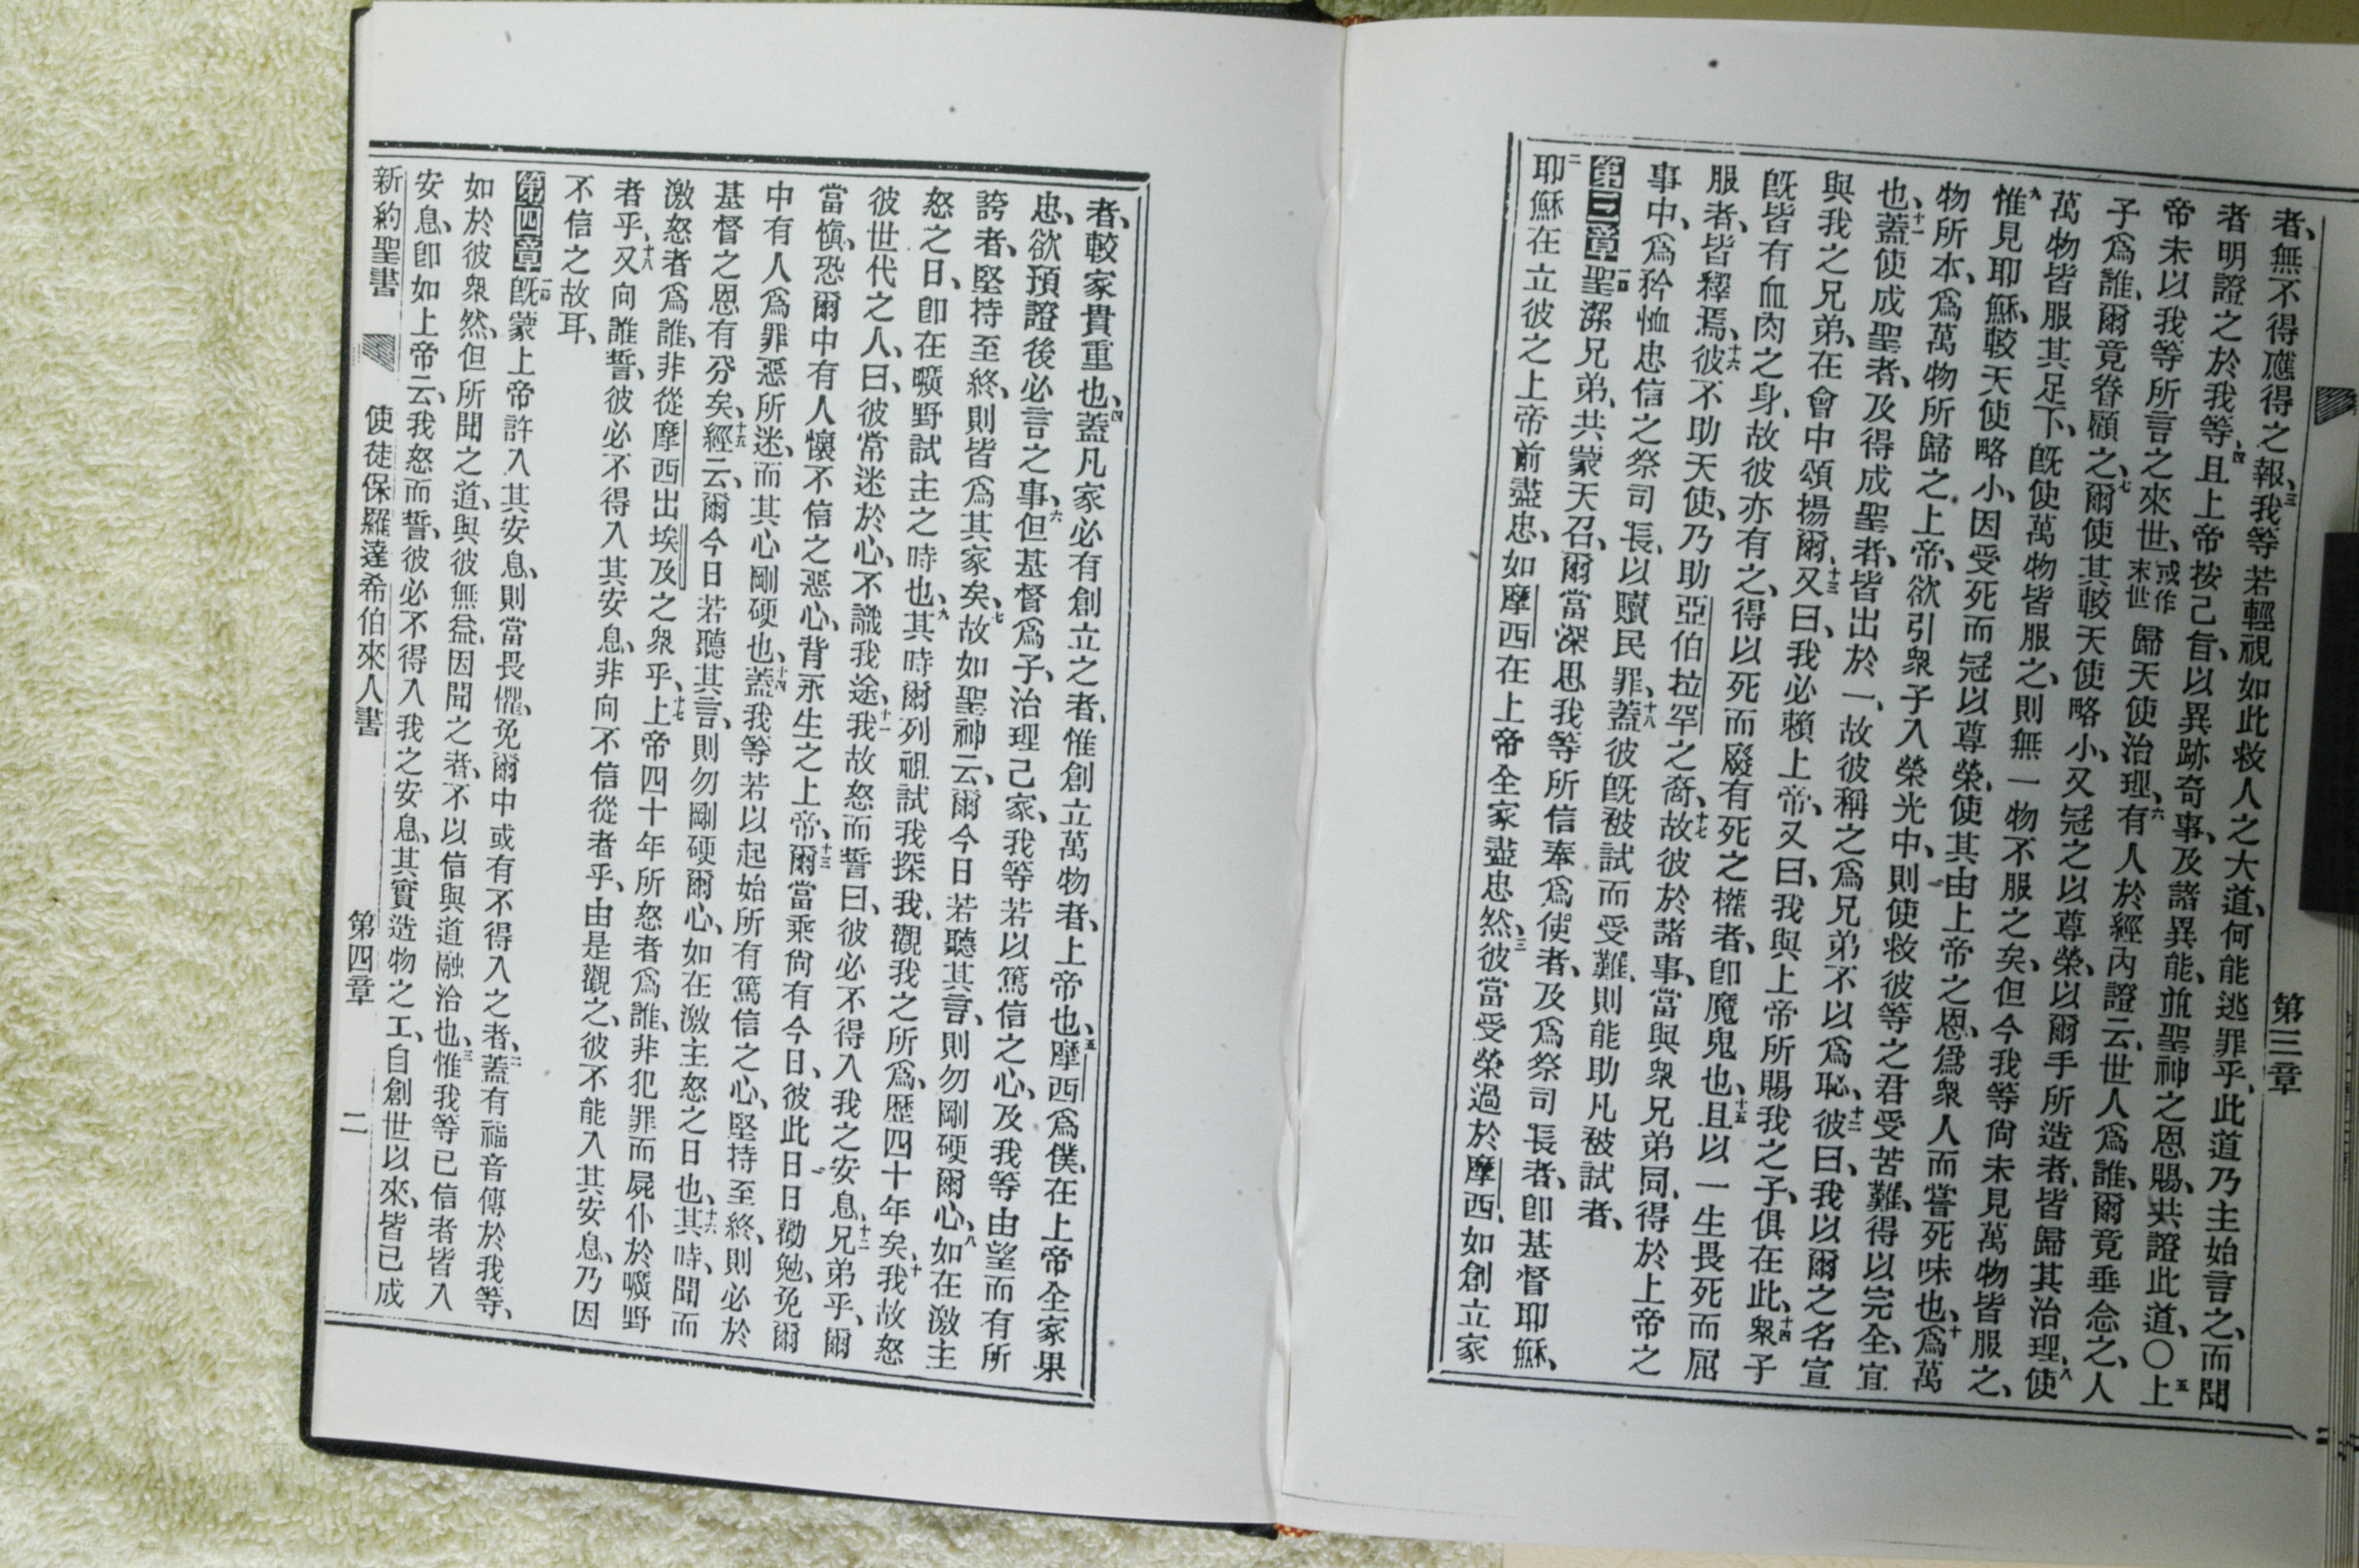 第三章
者、無不得應得之報、三我等若輕視如此救人之大道、何能逃罪乎、此道乃主始言之、而聞
者明證之於我等、四且上帝按己旨、以異跡奇事、及諸異能、並聖神之恩賜、共證此道、〇五上
帝未以我等所言之來世、或作末世歸天使治理、六有人於經內證云、世人爲誰、爾竟垂念之、人
子爲誰、爾竟眷顧之、七爾使其較天使略小、又冠之以尊榮、以爾手所造者、皆歸其治理、八使
萬物皆服其足下、旣使萬物皆服之、則無一物不服之矣、但今我等尙未見萬物皆服之、
九惟見耶穌、較天使略小、因受死而冠以尊榮、使其由上帝之恩、爲衆人而嘗死味也、十爲萬
物所本、爲萬物所歸之上帝、欲引衆子入榮光中、則使救彼等之君受苦難、得以完全、宜
也、十一蓋使成聖者、及得成聖者、皆出於一、故彼稱之爲兄弟不以爲恥、十二彼曰、我以爾之名宣
與我之兄弟、在會中頌揚爾、十三又曰、我必賴上帝、又曰、我與上帝所賜我之子、俱在此、十四衆子
旣皆有血肉之身、故彼亦有之、得以死而廢有死之權者、卽魔鬼也、十五且以一生畏死而屈
服者、皆釋焉、十六彼不助天使、乃助亞伯拉罕之裔、十七故彼於諸事、當與衆兄弟同、得於上帝之
事中、爲矜恤忠信之祭司長、以贖民罪、十八蓋彼旣被試而受難、則能助凡被試者、
第三章一節聖潔兄弟、共蒙天召、爾當深思我等所信奉爲使者、及爲祭司長者、卽基督耶穌、
二耶穌在立彼之上帝前盡忠、如摩西在上帝全家盡忠然、三彼當受榮過於摩西、如創立家
者、較家貴重也、四蓋凡家必有創立之者、惟創立萬物者、上帝也、五摩西爲僕、在上帝全家果
忠、欲預證後必言之事、六但基督爲子、治理己家、我等若以篤信之心、及我等由望而有所
誇者、堅持至終、則皆爲其家矣、七故如聖神云、爾今日若聽其言、則勿剛硬爾心、八如在激主
怒之日、卽在曠野試主之時也、九其時爾列祖試我探我、觀我之所爲、歷四十年矣、十我故怒
彼世代之人、曰、彼常迷於心、不識我途、十一我故怒而誓曰、彼必不得入我之安息、十二兄弟乎、爾
當愼、恐爾中有人懷不信之惡心、背永生之上帝、十三爾當乘尙有今日、彼此日日勸勉、免爾
中有人爲罪惡所迷、而其心剛硬也、十四蓋我等若以起始所有篤信之心、堅持至終、則必於
基督之恩有分矣、十五經云、爾今日若聽其言、則勿剛硬爾心、如在激主怒之日也、十六其時、聞而
激怒者爲誰、非從摩西出埃及之衆乎、十七上帝四十年所怒者爲誰、非犯罪而屍仆於曠野
者乎、十八又向誰誓、彼必不得入其安息、非向不信從者乎、由是觀之、彼不能入其安息、乃因
不信之故耳、
第四章一節旣蒙上帝許入其安息、則當畏懼、免爾中或有不得入之者、二蓋有福音傳於我等、
如於彼衆然、但所聞之道、與彼無益、因聞之者、不以信與道融洽也、三惟我等已信者皆入
安息、卽如上帝云、我怒而誓、彼必不得入我之安息、其實造物之工、自創世以來、皆已成
新約聖書 使徒保羅達希伯來人書 第四章 二